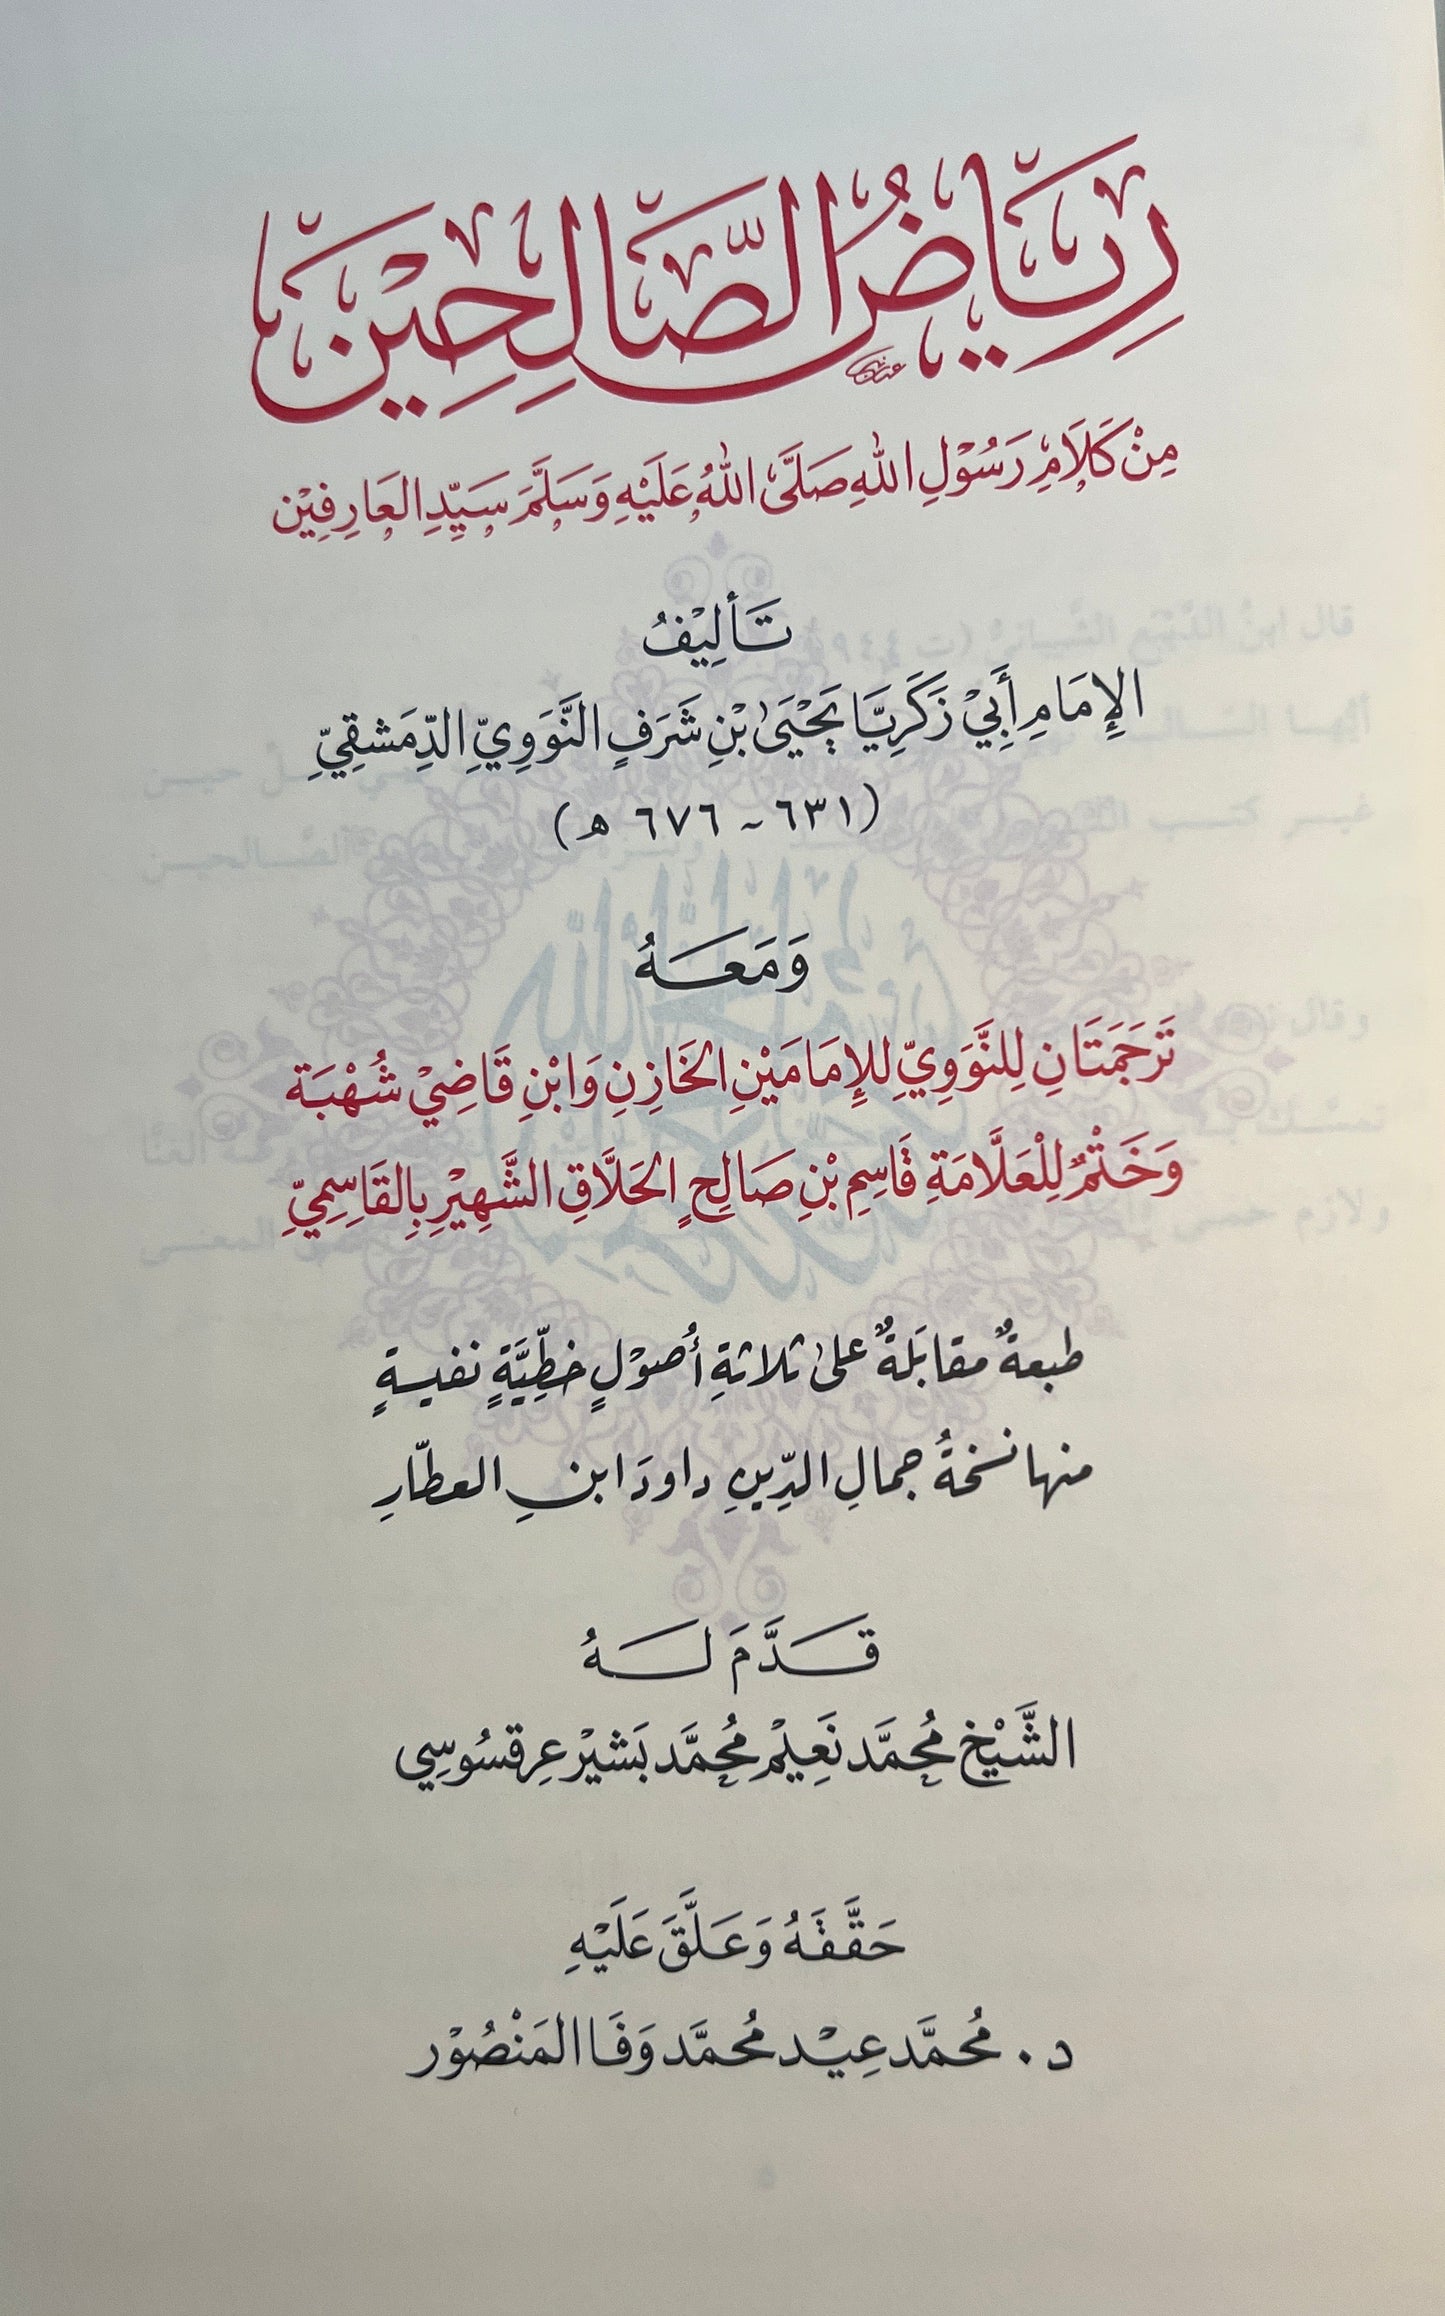 رِيَاضُ الصَّالِحِيْنَ
مِنْ كَلَامِ رَسُوْلِ اللهِ صَلَّى اللهُ عَلَيْهِ وَسَلَّمَ سَيِّدِ العَارِفِيْن
تَأْلِيْفُ
الإِمَامِ أَبِيْ زَكَرِيَّا يَحْيَىٰ بْنِ شَرَفٍ النَّوَوِيِّ الدِّمَشقِيِّ
(٦٣١ - ٦٧٦ ه)
وَمَعَهُ
تَرجَمَتَانِ لِلنَّوَوِيِّ لِلإِمَامَيْنِ الخَازِنِ وَابْنِ قَاضِيْ شُهْبَة
وَخَتْمٌ لِلْعَلَّامَةِ قَاسِمِ بْنِ صَالِحٍ الحَلَّاقِ الشَّهِيْرِ بِالقَاسِمِيِّ
طبعةٌ مقابَلةٌ علىٰ ثلاثةِ أُصوْلٍ خطِّيَّةٍ نفيسةٍ
منها نسخةُ جمالِ الدِّينِ داودَ ابنِ العطّارِ
قَدَّمَ لَهُ
الشَّيْخ مُحمَّد نَعِيْم مُحمَّد بَشيْر عِرقسُوسِي
حَقَّقَهُ وَعَلَّقَ عَلَيْهِ
د. مُحمَّد عِيْد مُحمَّد وَفَا المَنْصُوْر